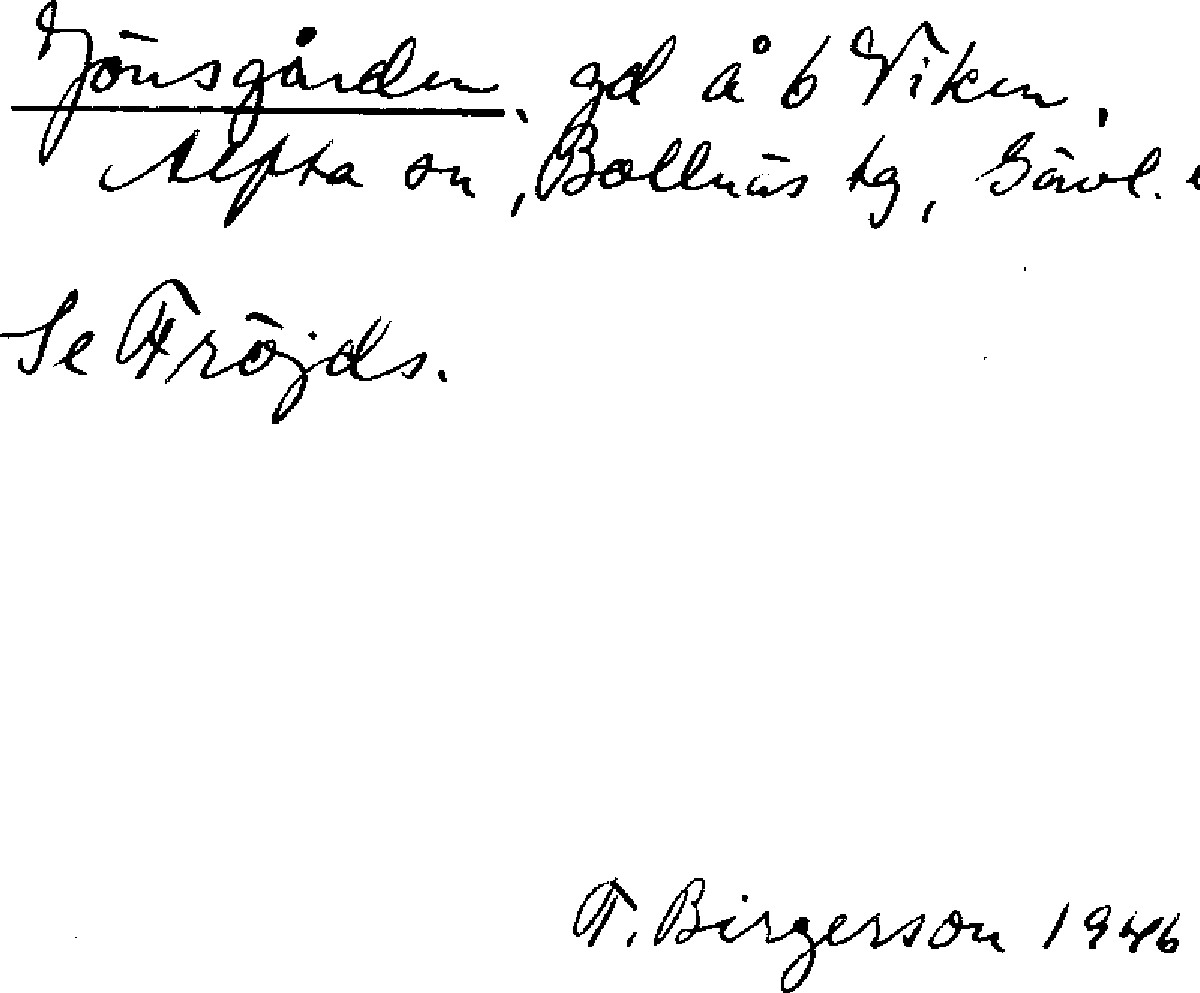 Jönsgården, gd å b Viken,
Alfta sn, Bollnäs tg, Gävl.
Se Fröjds.
F. Birgerson 1946